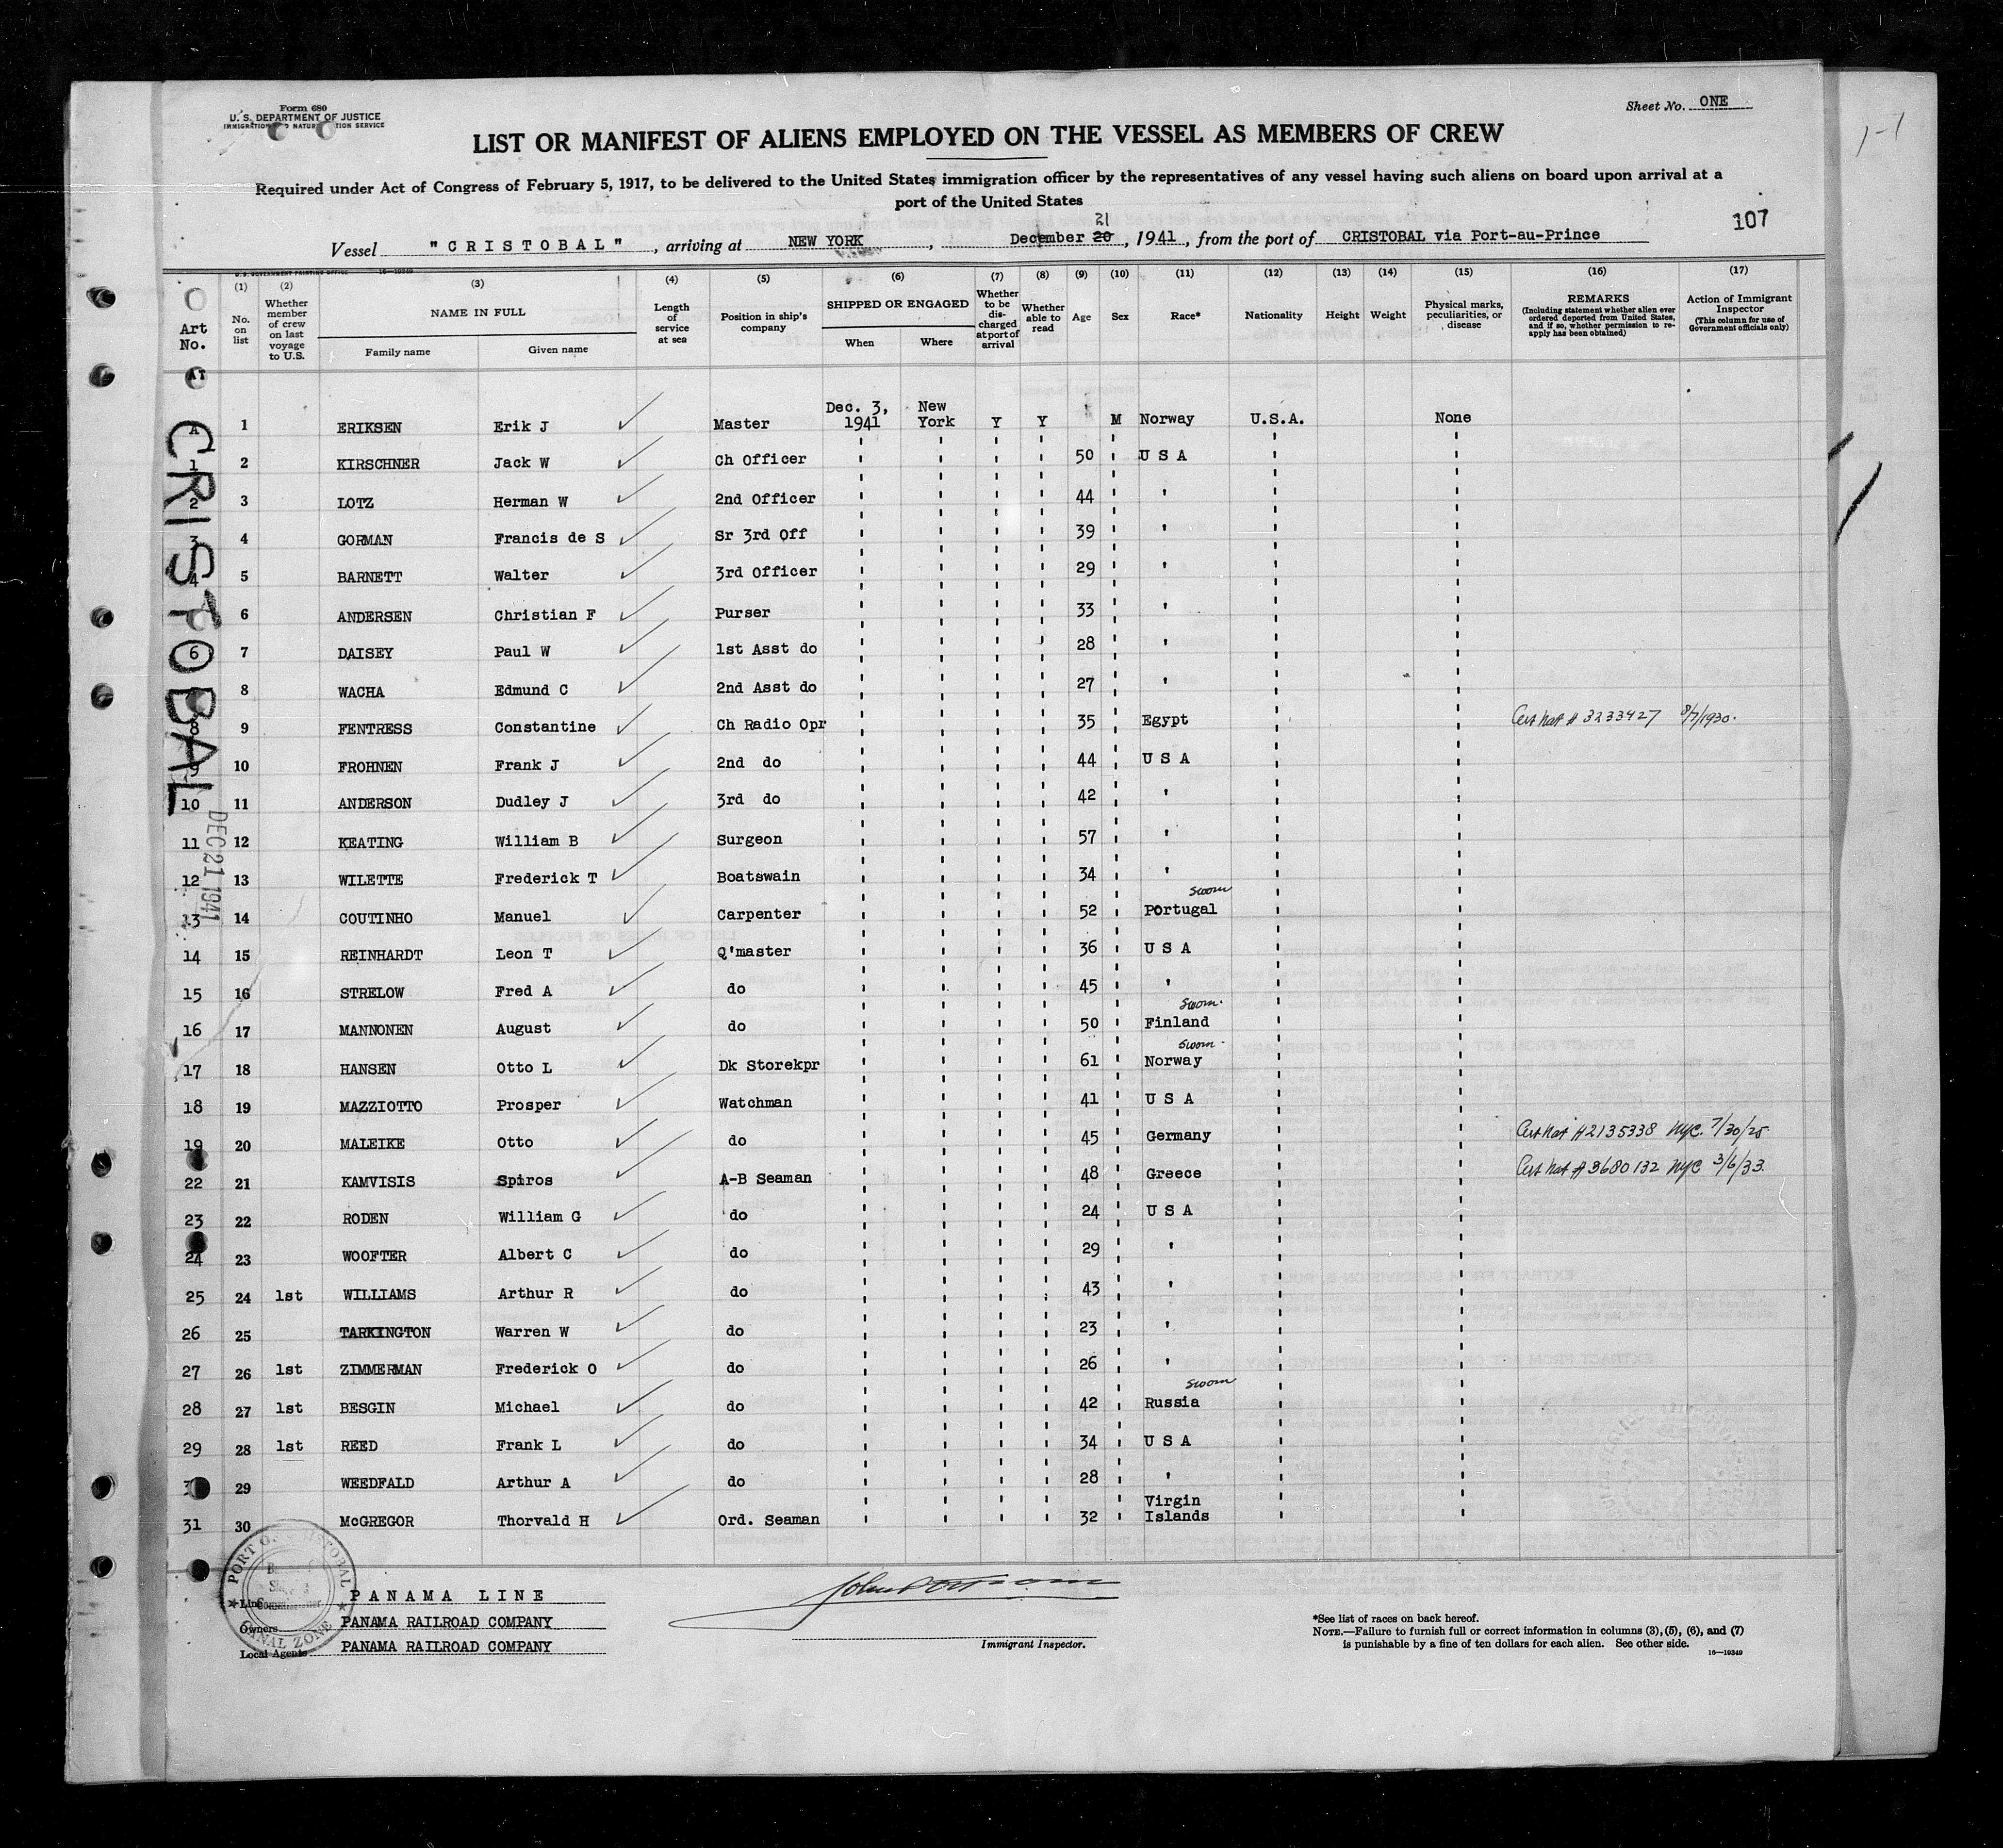 Form 680
U. S. DEPARTMENT OF JUSTICE
IMMIGRATION NATURTION SERVICE
Sheet No. ONE
1-1
LIST OR MANIFEST OF ALIENS EMPLOYED ON THE VESSEL AS MEMBERS OF CREW
Required under Act of Congress of February 5, 1917, to be delivered to the United States immigration officer by the representatives of any vessel having such aliens on board upon arrival at a
port of the United States
107
21
Vessel "CRISTOBAL", arriving at NEW YORK, December 20, 1941, from the port of CRISTOBAL via Port-au-Prince
U.S. GOVERNMENT PRINTING OFFICE 16—19349
(1) (2) (3) (4) (5) (6) (7) (8) (9) (10) (11) (12) (13) (14) (15) (16) (17)
Art No.
No. on list
Whether member of crew on last voyage to U.S.
NAME IN FULL
Family name Given name
Length of service at sea
Position in ship's company
SHIPPED OR ENGAGED
When Where
Whether to be discharged at port of arrival
Whether able to read
Age
Sex
Race*
Nationality
Height
Weight
Physical marks, peculiarities, or disease
REMARKS
(Including statement whether alien ever ordered deported from United States, and if so, whether permission to reapply has been obtained)
Action of Immigrant Inspector
(This column for use of Government officials only)
CRISTOBAL
DEC 21 1941
A 1 ERIKSEN Erik J Master Dec. 3, 1941 New York Y Y M Norway U.S.A. None
1 2 KIRSCHNER Jack W Ch Officer " " " " 50 " U S A " "
2 3 LOTZ Herman W 2nd Officer " " " " 44 " " " "
3 4 GORMAN Francis de S Sr 3rd Off " " " " 39 " " " "
4 5 BARNETT Walter 3rd Officer " " " " 29 " " " "
6 ANDERSEN Christian F Purser " " " " 33 " " " "
6 7 DAISEY Paul W 1st Asst do " " " " 28 " " " "
8 WACHA Edmund C 2nd Asst do " " " " 27 " " " "
8 9 FENTRESS Constantine Ch Radio Opr " " " " 35 " Egypt " " Cert Nat # 3233427 8/7/1930.
9 10 FROHNEN Frank J 2nd do " " " " 44 " U S A " "
10 11 ANDERSON Dudley J 3rd do " " " " 42 " " " "
11 12 KEATING William B Surgeon " " " " 57 " " " "
12 13 WILETTE Frederick T Boatswain " " " " 34 " " " "
13 14 COUTINHO Manuel Carpenter " " " " 52 " Sworn Portugal " "
14 15 REINHARDT Leon T Q'master " " " " 36 " U S A " "
15 16 STRELOW Fred A do " " " " 45 " " " "
16 17 MANNONEN August do " " " " 50 " Sworn. Finland " "
17 18 HANSEN Otto L Dk Storekpr " " " " 61 " Sworn. Norway " "
18 19 MAZZIOTTO Prosper Watchman " " " " 41 " U S A " "
19 20 MALEIKE Otto do " " " " 45 " Germany " " Cert Nat # 2135338 NYC. 7/30/25
22 21 KAMVISIS Spiros A-B Seaman " " " " 48 " Greece " " Cert Nat # 3680132 NYC 3/6/33.
23 22 RODEN William G do " " " " 24 " U S A " "
24 23 WOOFTER Albert C do " " " " 29 " " " "
25 24 1st WILLIAMS Arthur R do " " " " 43 " " " "
26 25 TARKINGTON Warren W do " " " " 23 " " " "
27 26 1st ZIMMERMAN Frederick O do " " " " 26 " " " "
28 27 1st BESGIN Michael do " " " " 42 " Sworn Russia " "
29 28 1st REED Frank L do " " " " 34 " U S A " "
29 WEEDFALD Arthur A do " " " " 28 " " " "
31 30 McGREGOR Thorvald H Ord. Seaman " " " " 32 " Virgin Islands " "
PORT O TOBAL
CANAL ZONE
Line PANAMA LINE
Owners PANAMA RAILROAD COMPANY
Local Agents PANAMA RAILROAD COMPANY
Immigrant Inspector.
*See list of races on back hereof.
NOTE.—Failure to furnish full or correct information in columns (3), (5), (6), and (7)
is punishable by a fine of ten dollars for each alien. See other side.
16—19349